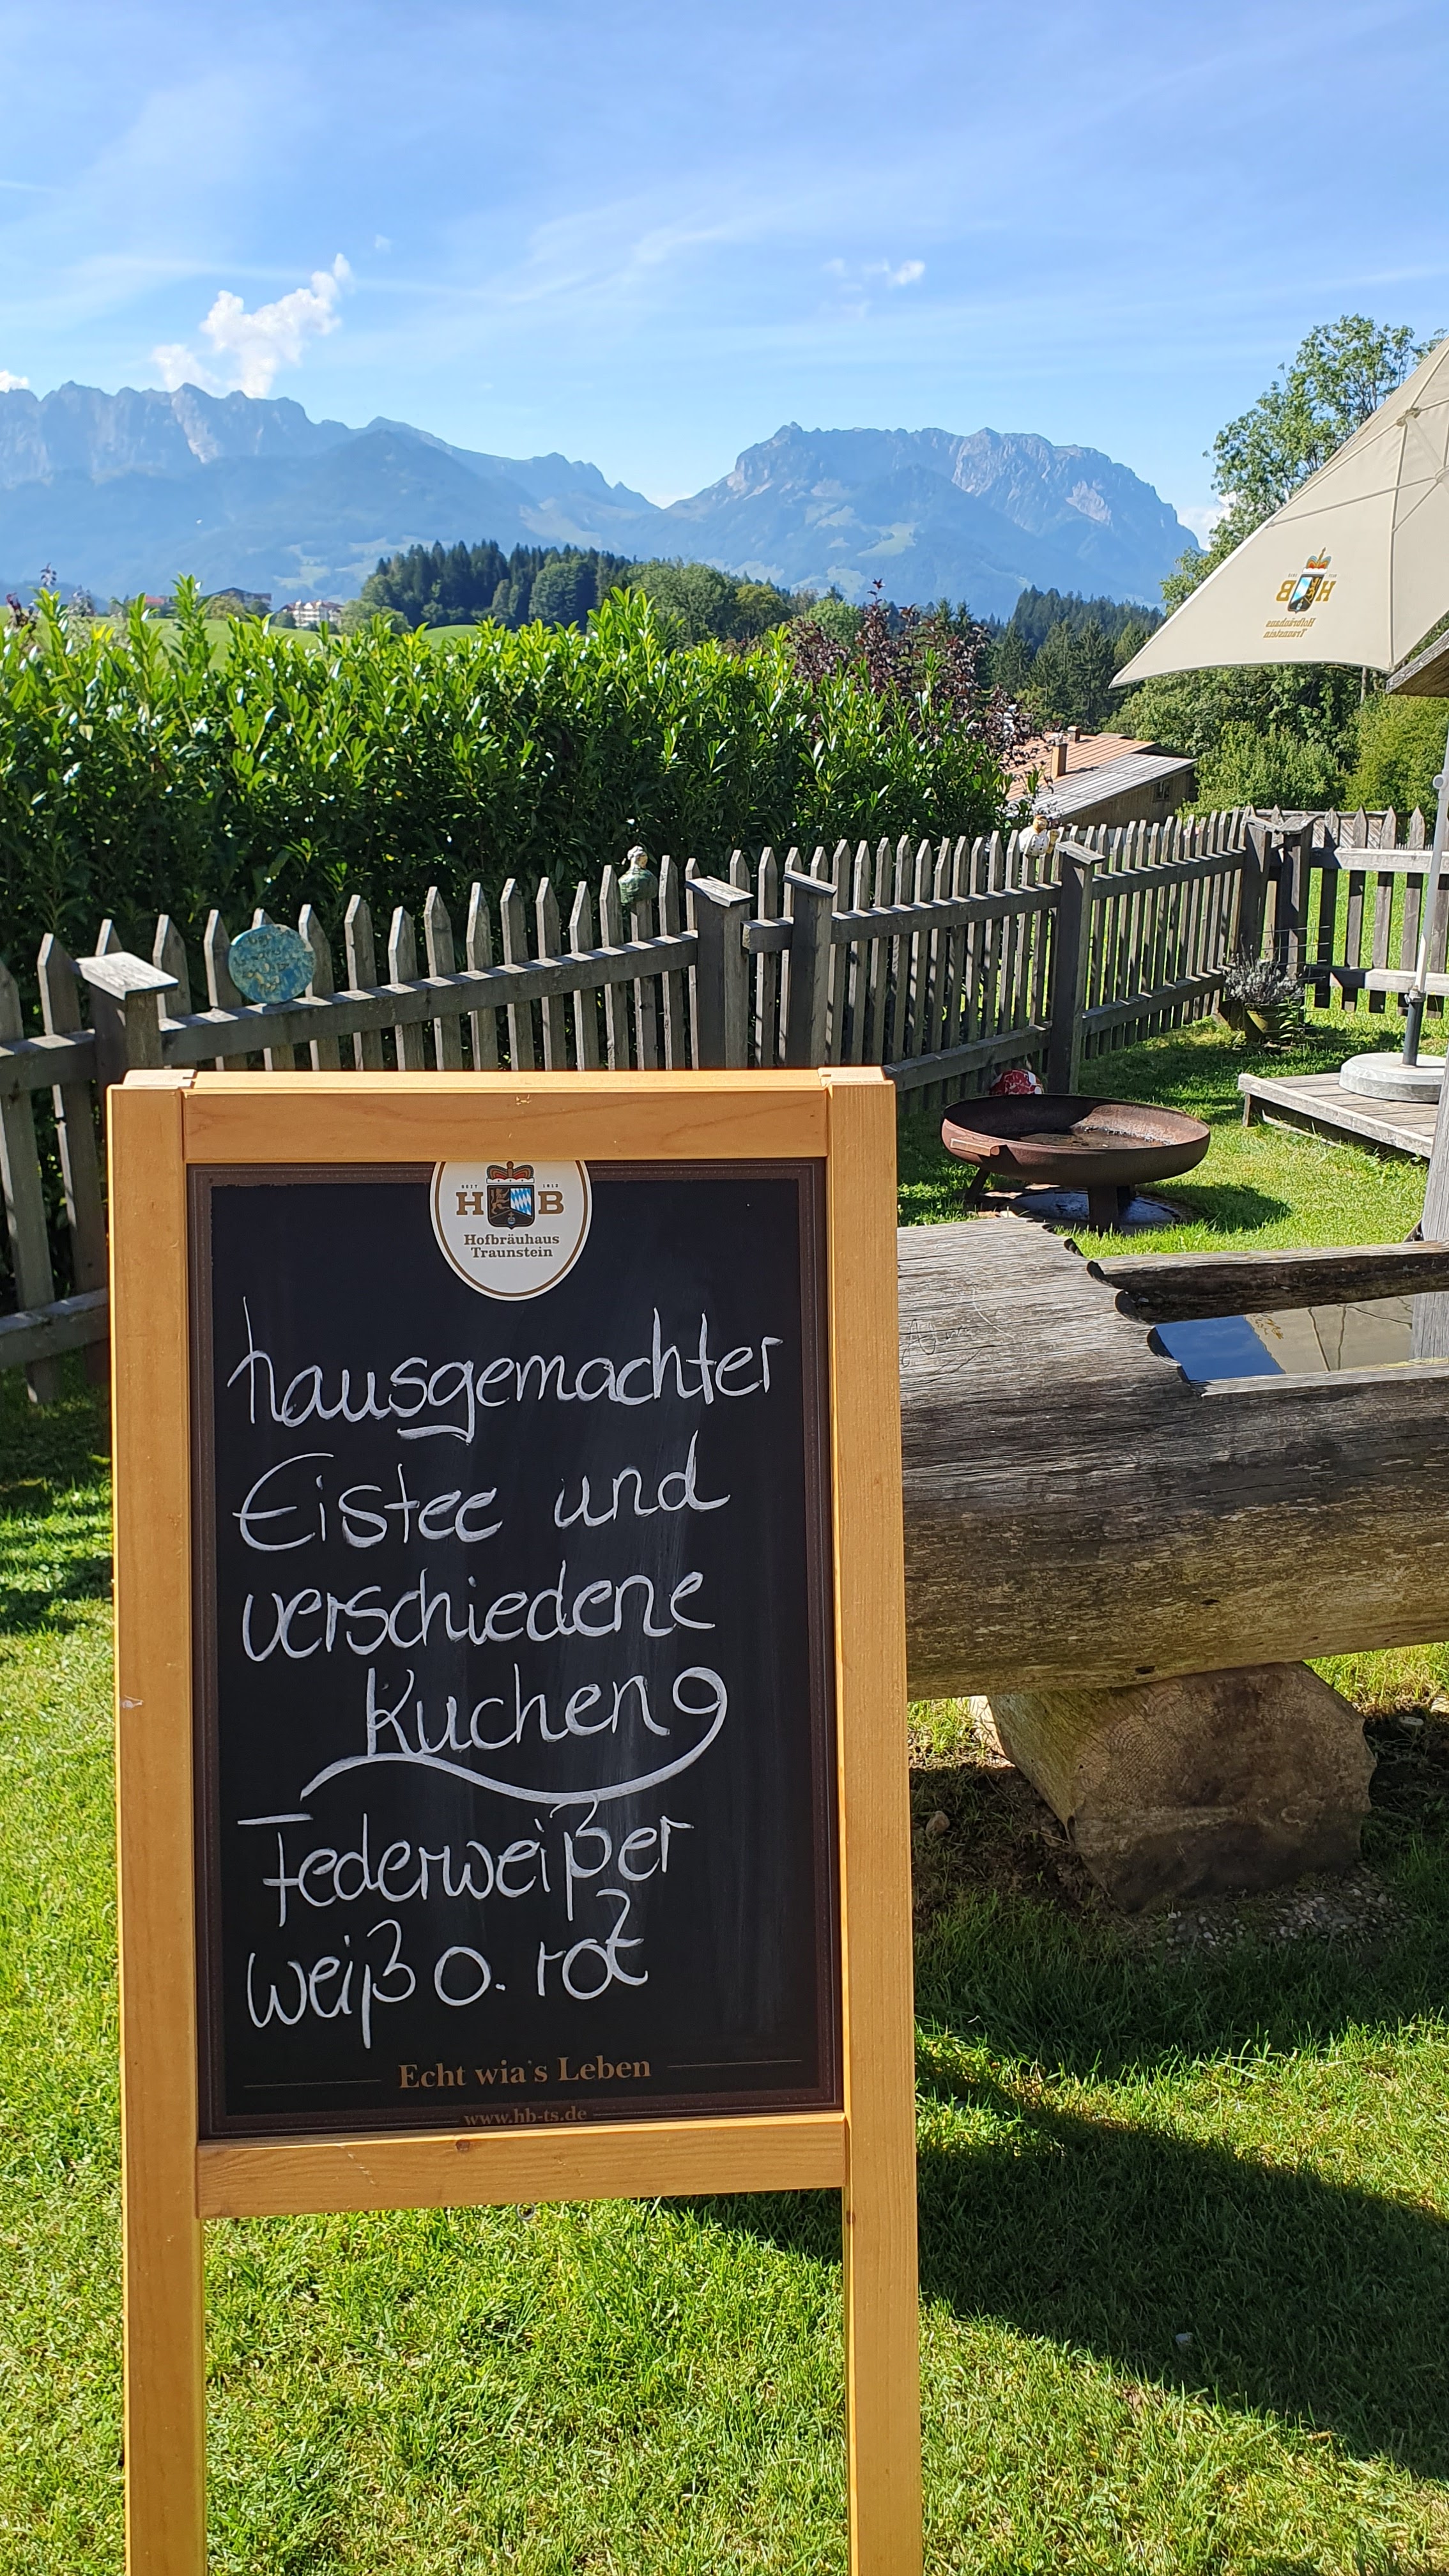 H B
Hofbräuhaus
Traunstein
hausgemachter
Eistee und
verschiedene
Kuchen
Federweißer
weiß o. rot
Echt wia's Leben
www.hb-ts.de
HB
Hofbräuhaus
Traunstein